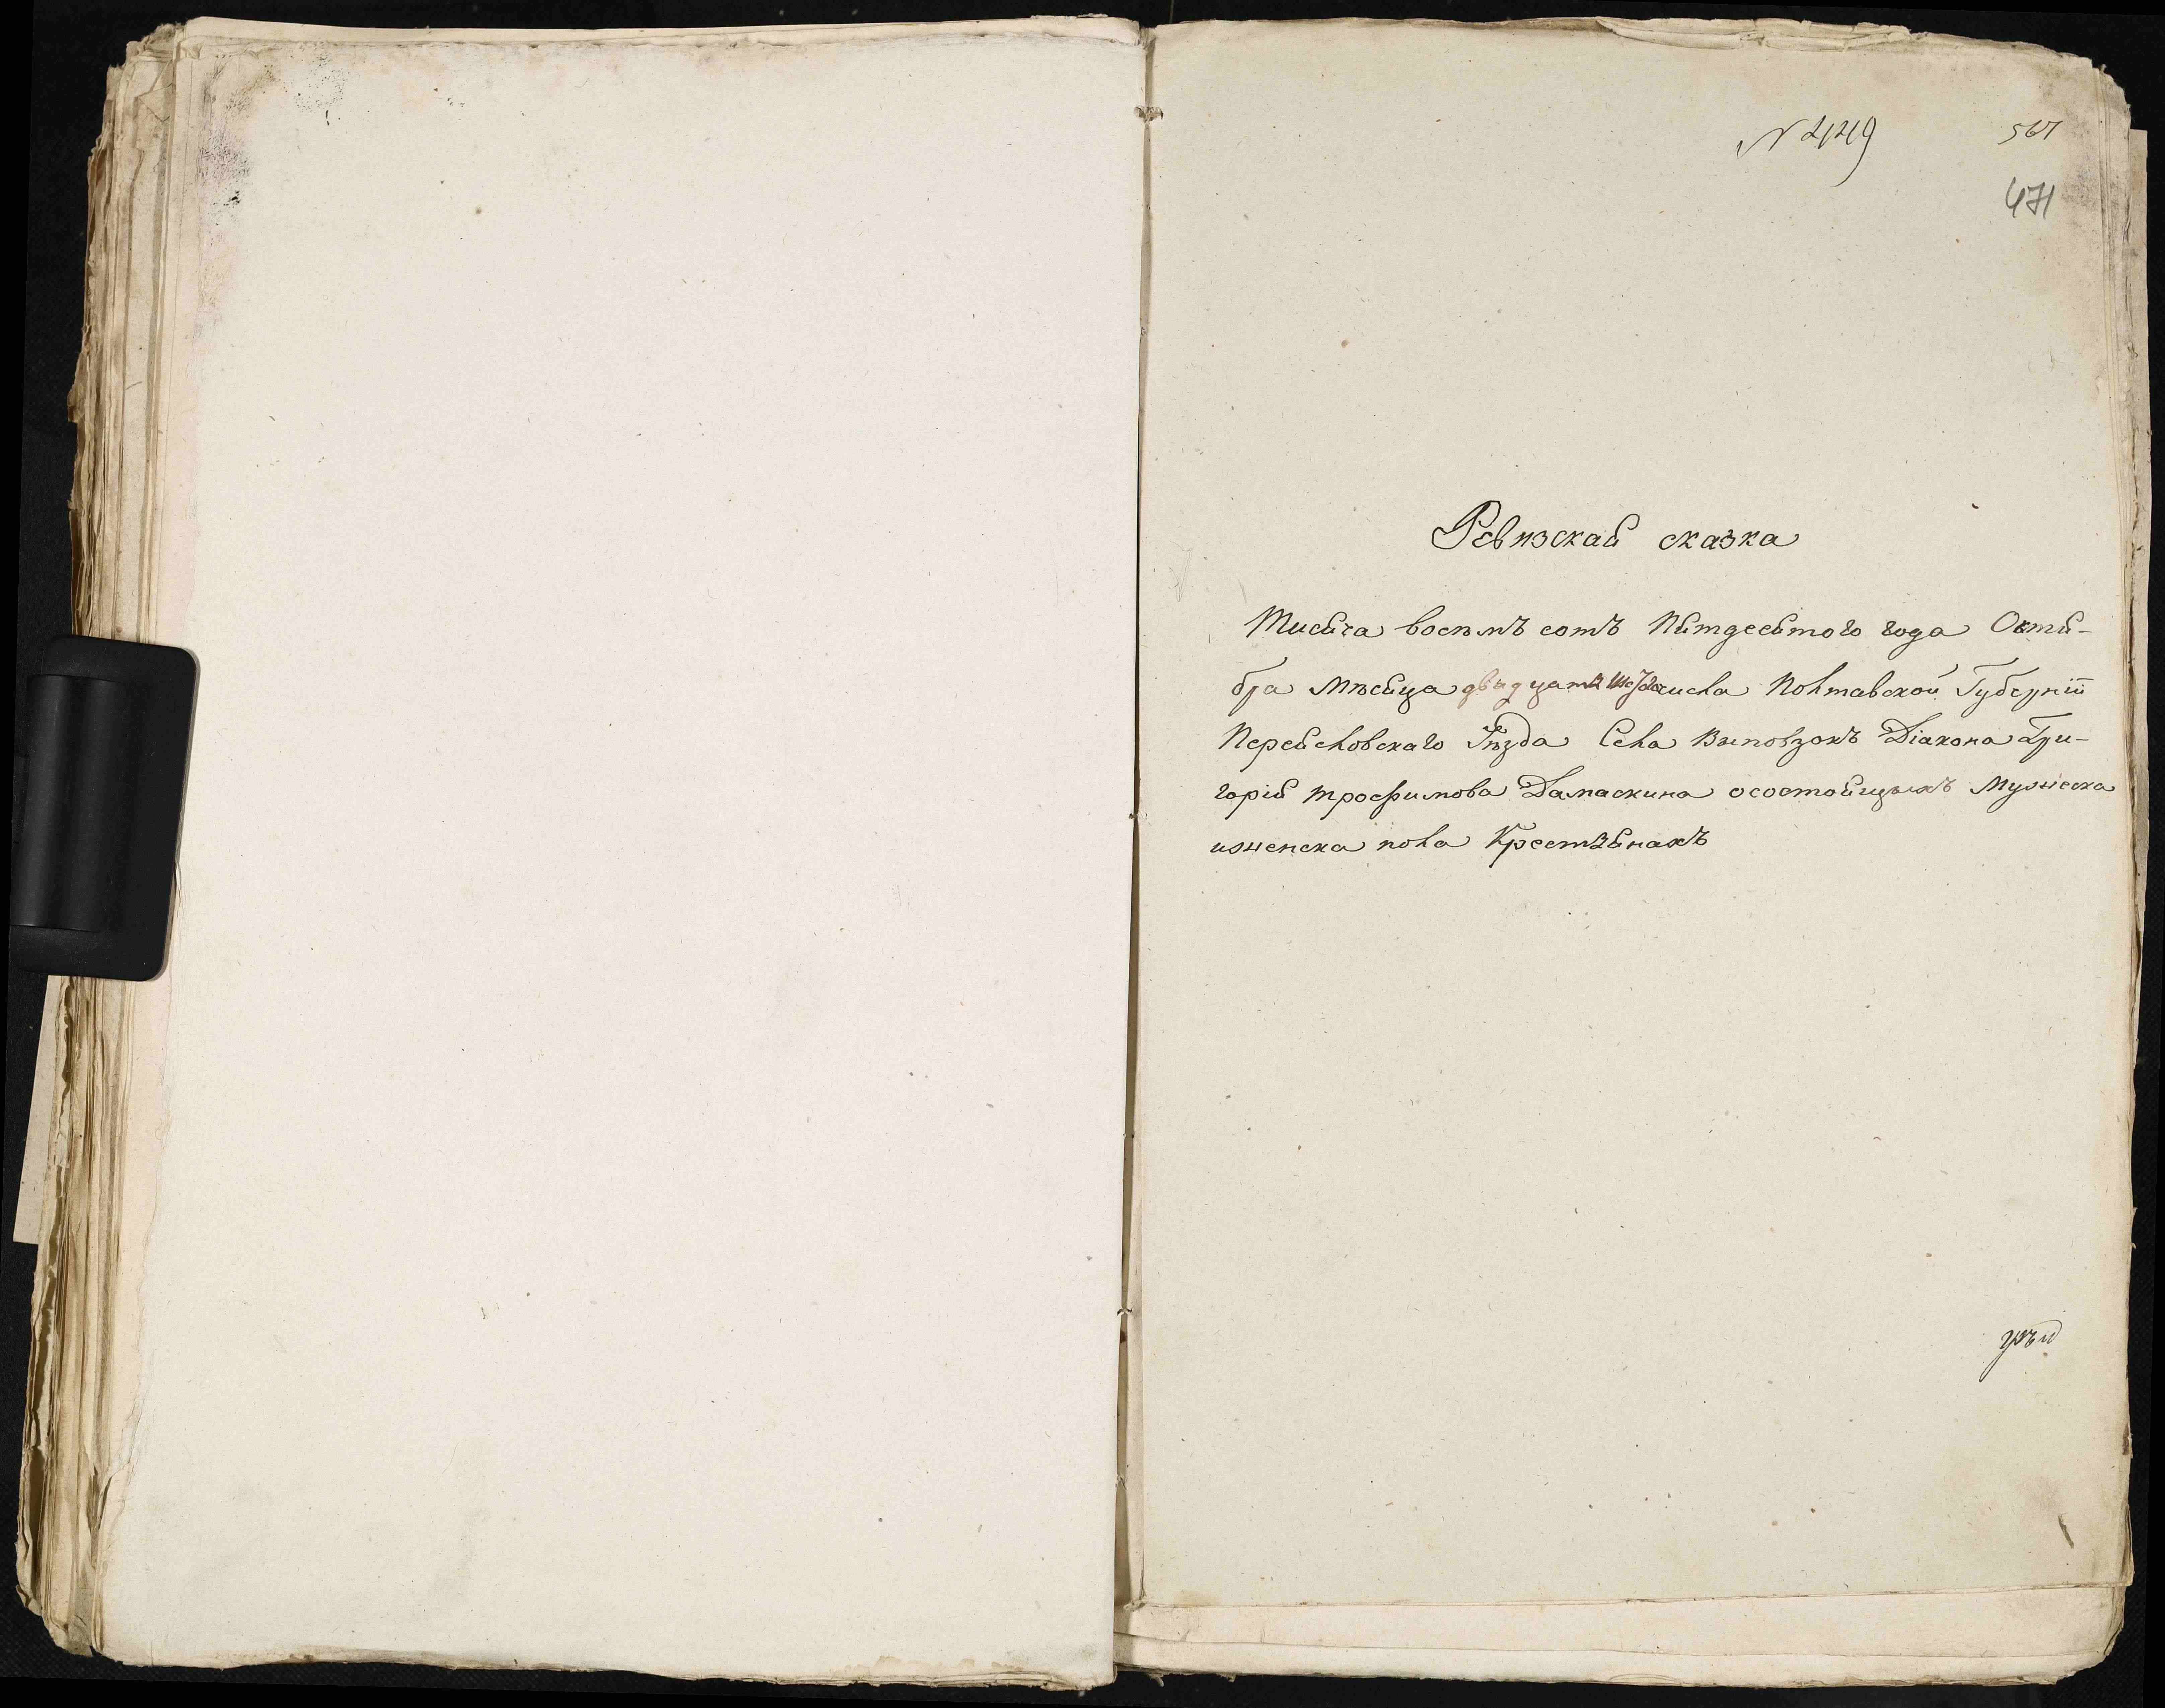 N 449
567
471
Ревизская сказка
Тисяча восемъ сотъ Пятдесятого года Октя-
бра Мѣсяца двадцать числа Полтавской Губерніи
Переяславскаго Уѣзда Села Выповзокъ Діакона Гри-
горія Трофимова Дамаскина осостоящихъ Мужеска
иженска пола Крестьянахъ